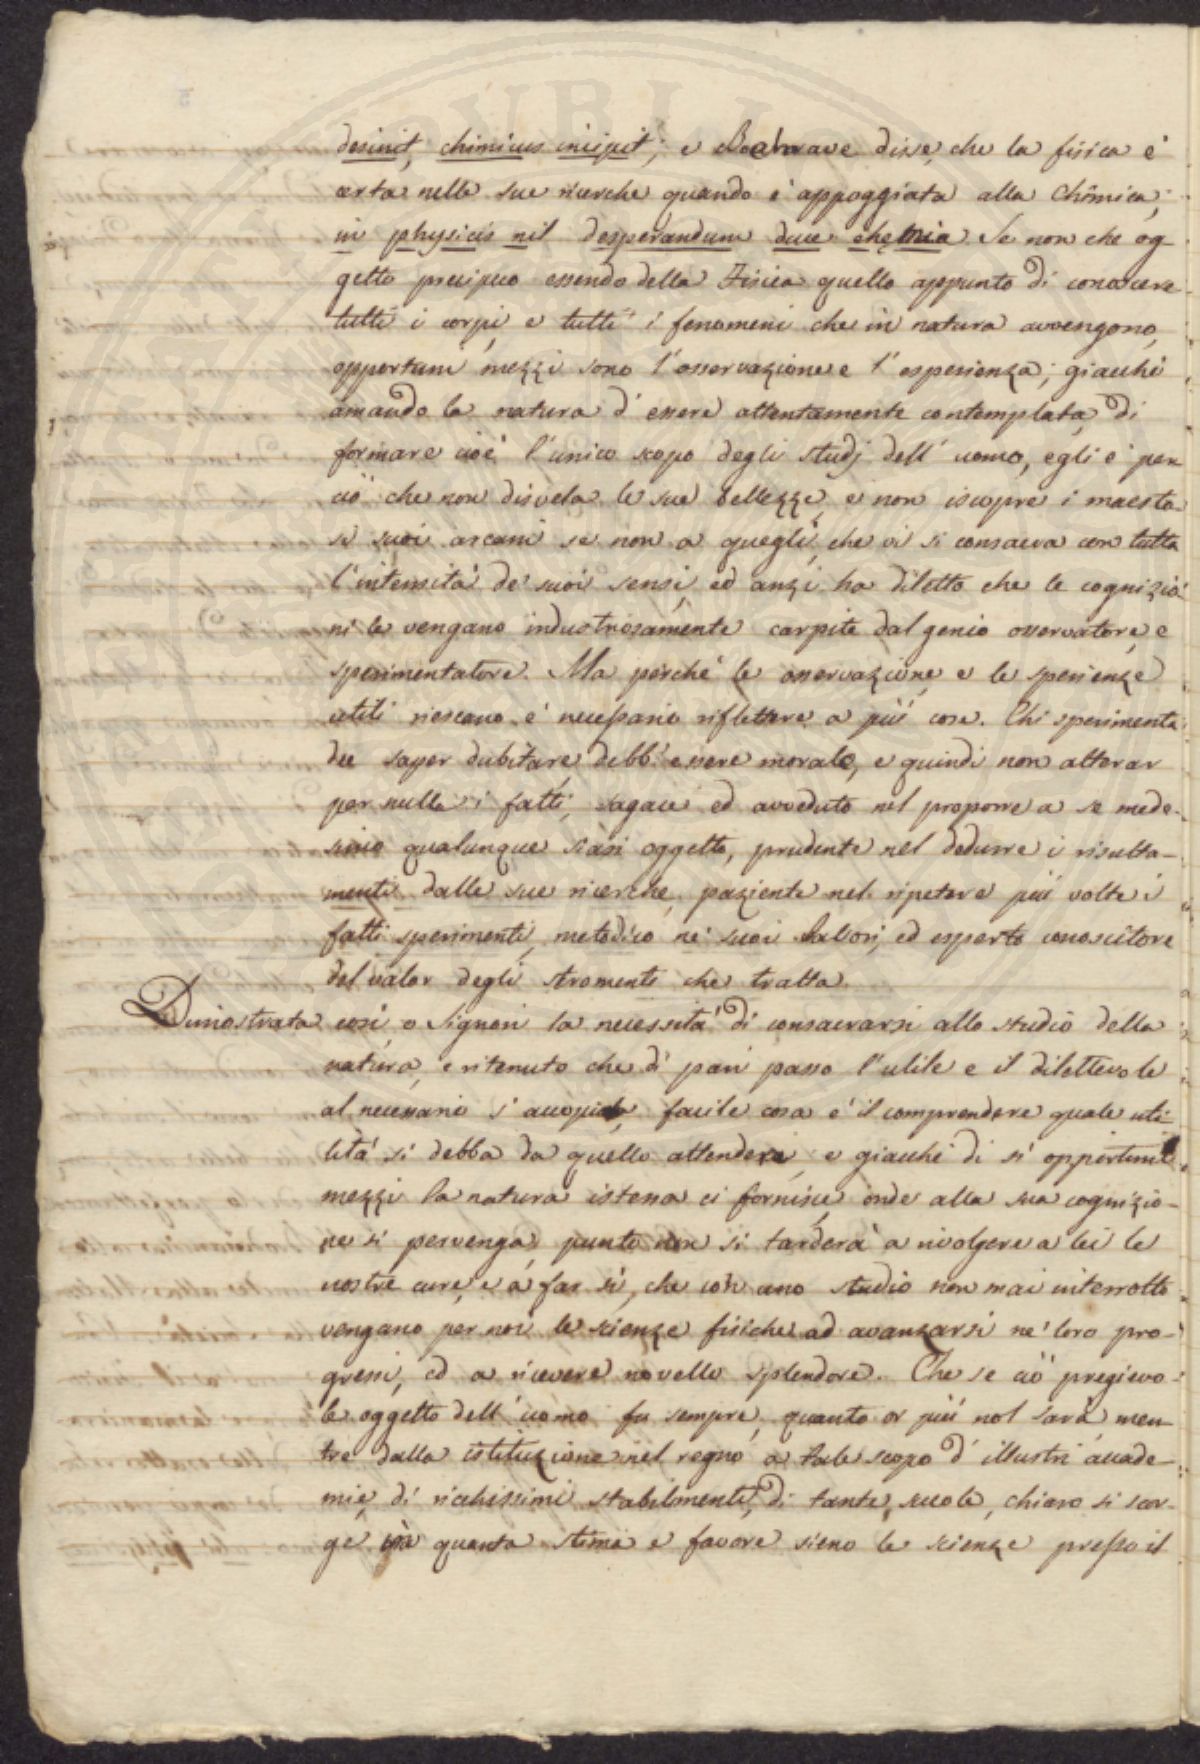 desinit, chimicus incipit; e Boehrave disse, che la fisica è
certa nelle sue ricerche quando è appoggiata alla Chimica;
in physicis nil desperandum duce chemia. Se non che og-
getto precipuo essendo della Fisica quello appunto di conoscere
tutti i corpi, e tutti i fenomeni che in natura avvengono,
opportuni mezzi sono l'osservazione e l'esperienza; giacché
amando la natura d'essere attentamente contemplata, di
formare cioè l'unico scopo degli studj dell'uomo, egli è per
ciò che non disvela le sue bellezze, e non iscopre i maesto-
si suoi arcani se non a quegli, che vi si consacra con tutta
l'intensità de' suoi sensi, ed anzi ha diletto che le cognizio-
ni le vengano industriosamente carpite dal genio osservatore, e
sperimentatore. Ma perché le osservazione, e le sperienze
utili riescano è necessario riflettere a più cose. Chi sperimenta
dee saper dubitare, debb'essere morale, e quindi non alterar
per nulla i fatti, sagace ed avveduto nel proporre a se mede-
simo qualunque siasi oggetto, prudente nel dedurre i risulta-
menti dalle sue ricerche, paziente nel ripetere più volte i
fatti sperimenti, metodico ne' suoi lavori, ed esperto conoscitore
del valor degli stromenti che tratta.
Dimostrata così, o Signori la necessità di consacrarsi allo studio della
natura, e ritenuto che di pari passo l'utile e il dilettevole
al necessario s'accoppia, facile cosa è il comprendere quale uti-
lità si debba da quello attendere, e giacché di sì opportuni
mezzi la natura istessa ci fornisce, onde alla sua cognizio-
ne si pervenga, punto non si tarderà a rivolgere a lei le
nostre cure, e a far sì, che con uno studio non mai interrotto
vengano per noi le scienze fisiche ad avanzarsi ne' loro pro-
gressi, ed a ricevere novello splendore. Che se ciò pregievo-
le oggetto dell'uomo fu sempre, quanto or più nol sarà, men-
tre dalla istituzione nel regno a tale scopo d'illustri accade-
mie, di ricchissimi stabilimenti, di tante scuole, chiaro si scor-
ge in quanta stima e favore sieno le scienze presso il